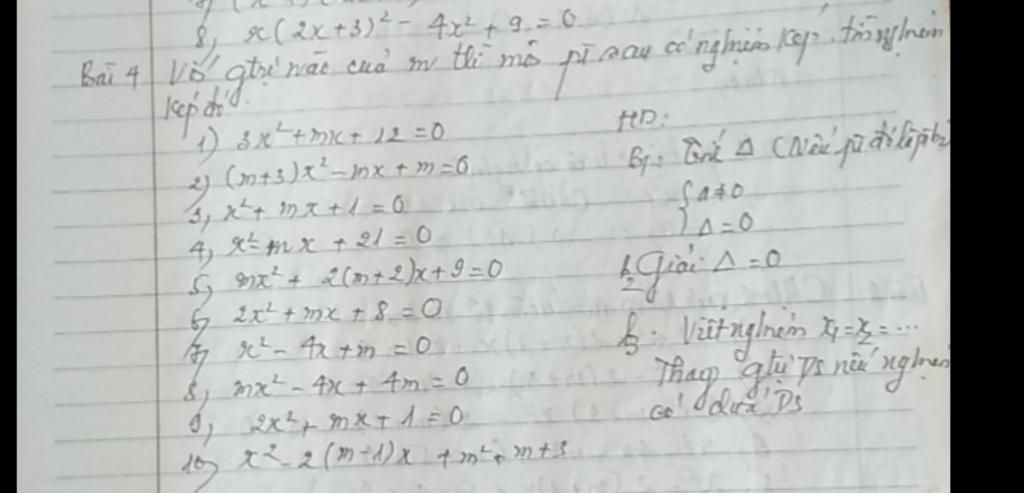 8, x(2x+3)² - 4x² + 9 = 0
Bài 4 Với gtrị nào của m thì mỗi pt sau có nghiệm kép. tìm nghiệm
kép đó.
1) 3x² + mx + 12 = 0
2) (m+3)x² - mx + m = 0
3, x² + mx + 1 = 0
4, x² - mx + 21 = 0
5, mx² + 2(m+2)x + 9 = 0
6, 2x² + mx + 8 = 0
7, x² - 4x + m = 0
8, mx² - 4x + 4m = 0
9, 2x² + mx + 1 = 0
10, x² - 2(m-1)x + m² + m + 3
HD:
B1: Tính Δ (Nếu pt đó là ptb2
{ a ≠ 0
Δ = 0
b2 Giải Δ = 0
b3: Viết nghiệm x1 = x2 = ...
Thay gtrị Ds nếu nghiệm
có chứa Ds